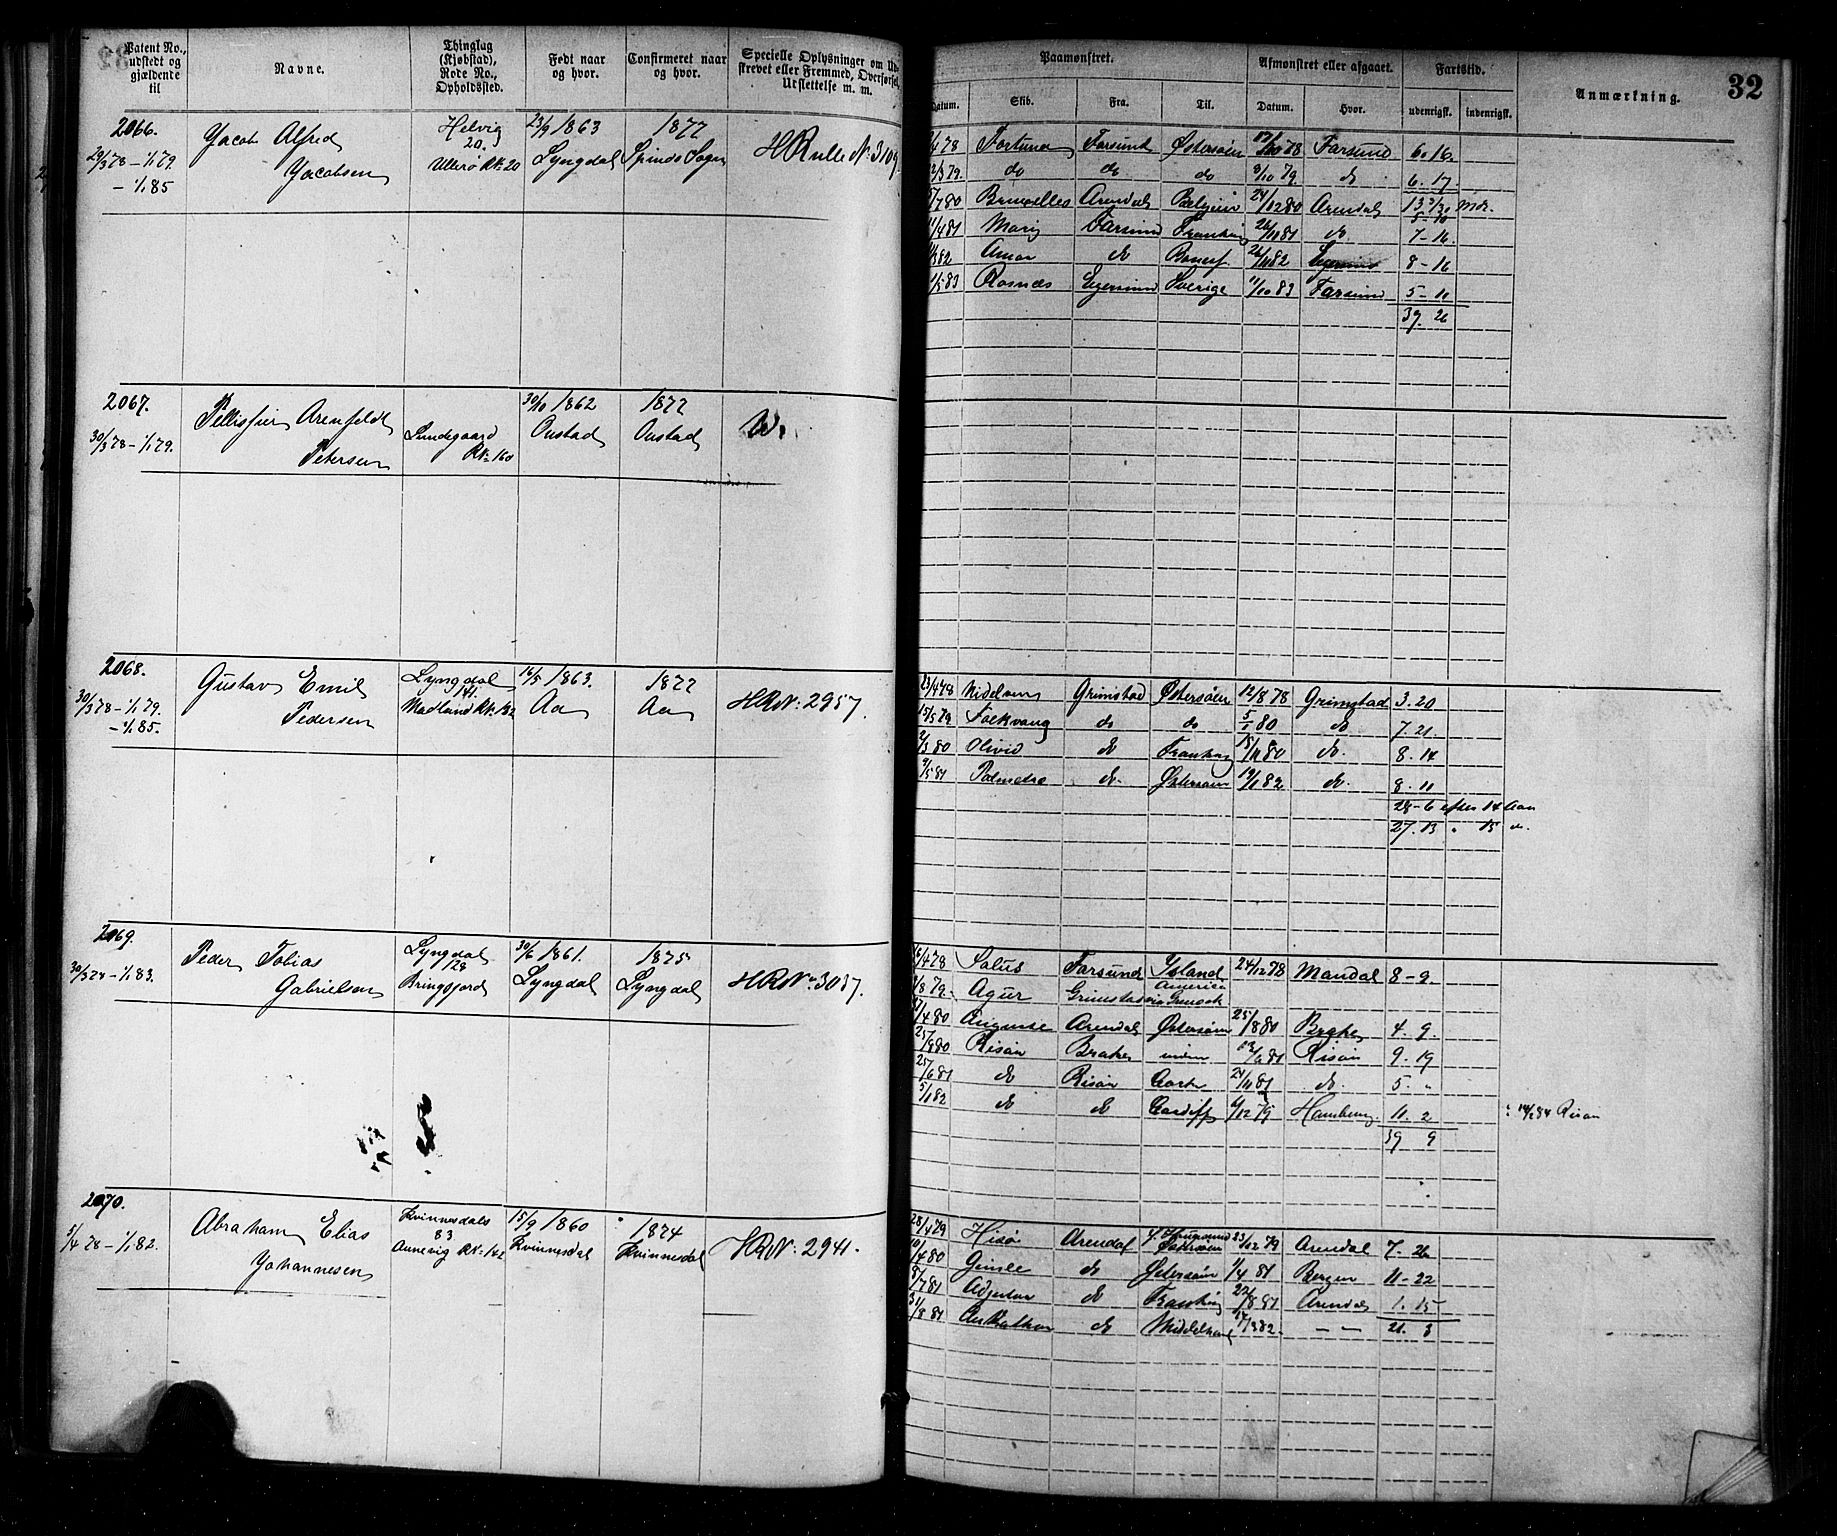 Patent No., udstedt og gjældende til
Navne.
Thinglag (Kjøbstad), Rode No., Opholdssted.
Født naar og hvor.
Confirmeret naar og hvor.
Specielle Oplysninger om Ud- strevet eller Fremmed, Overførsel, Urslettelse m. m.
2066.
29/3 78 – 1/1 79.
– 1/1 85
Jacob Alfred
Jacobsen
Helvig
20.
Ullerø RN: 20
23/9 1863
Lyngdal
1877
Spinds Sogn
HRulle N: 3109
2067.
30/3 78 – 1/1 79.
Pellisfier Arenfeldt
Petersen
Lundegaard
RN: 160
30/10 1862
Oustad
1877
Oustad
W.
2068.
30/3 78 – 1/1 79.
– 1/1 85.
Gustav Emil
Pedersen
Lyngdal
141.
Madland RN: 132
14/5 1863.
Aa
1877
Aa
HRN: 2957.
2069.
30/3 74 – 1/1 83.
Peder Tobias
Gabrielsen
Lyngdal
128
Bringsjord
30/6 1861.
Lyngdal
1875
Lyngdal
HRN: 3037.
2070.
5/4 78 – 1/1 82.
Abraham Elias
Johannesen
Kvinnesdals
83
Annevig RN: 162
15/9 1860
Kvinnesdal
1874
Kvinnesdal
HRN: 2941.
32
Paamønstret.
Afmønstret eller afgaaet.
Fartstid.
Anmærkning.
Datum.
Skib.
Fra.
Til.
Datum.
Hvor.
udenrigsk.
indenrigsk.
/4 78 Fortuna Farsund Østersøen 17/10 78 Farsund 6. 16.
2/3 79. do do do 9/10 79. do 6. 17
/7 80 Bruxelles Arendal Belgien 24/12 80 Arendal 13 3/30 Mdr.
5 10
/4 81 Marig Farsund Frankrig 26/11 81 do. 7–16.
/3 82 Amor do 26/11 82 Egersund 8–16
/5 83 Rosnæs Egersund Sverige 11/10 83 Farsund 5–11
39. 26
23/4 78 Nidelven Grimstad Østersøen 12/8 78 Grimstad 3. 20
15/5 79 Folkvang do do 5/1 80 do 7. 21.
2/3 80 Olivid do Frankrig 15/11 80 do. 8. 14
9/5 81 do. Østersøen 19/1 82 do. 8. 11
28–6 efter 14 Aar
27. 13 " 15 do.
16/4 78 Salus Farsund Island 24/12 78 Mandal 8–9.
/8 79. Agur Grimstad America via Grenock
/4 80 Auguste Arendal Østersøen 25/8 80 Brake 4. 9.
25/8 80 Risøn Brake 13/6 81 Risøn 9. 19
25/6 81 do Risøn 24/11 81 do. 5. "
5/1 82 do do Cardiff 6/12 Hamburg 11. 2
14/2 84 Risøn
39 9
28/4 79 Hisø Arendal 23/12 79 Arendal 7. 26
10/4 80 Gimle do Østersøen 1/4 81 Bergen 11–22
8/7 81 do Frankrig 22/8 81 Arendal 1. 15
31/8 81 do Middelhavet 17/3 82. – – 21. 3